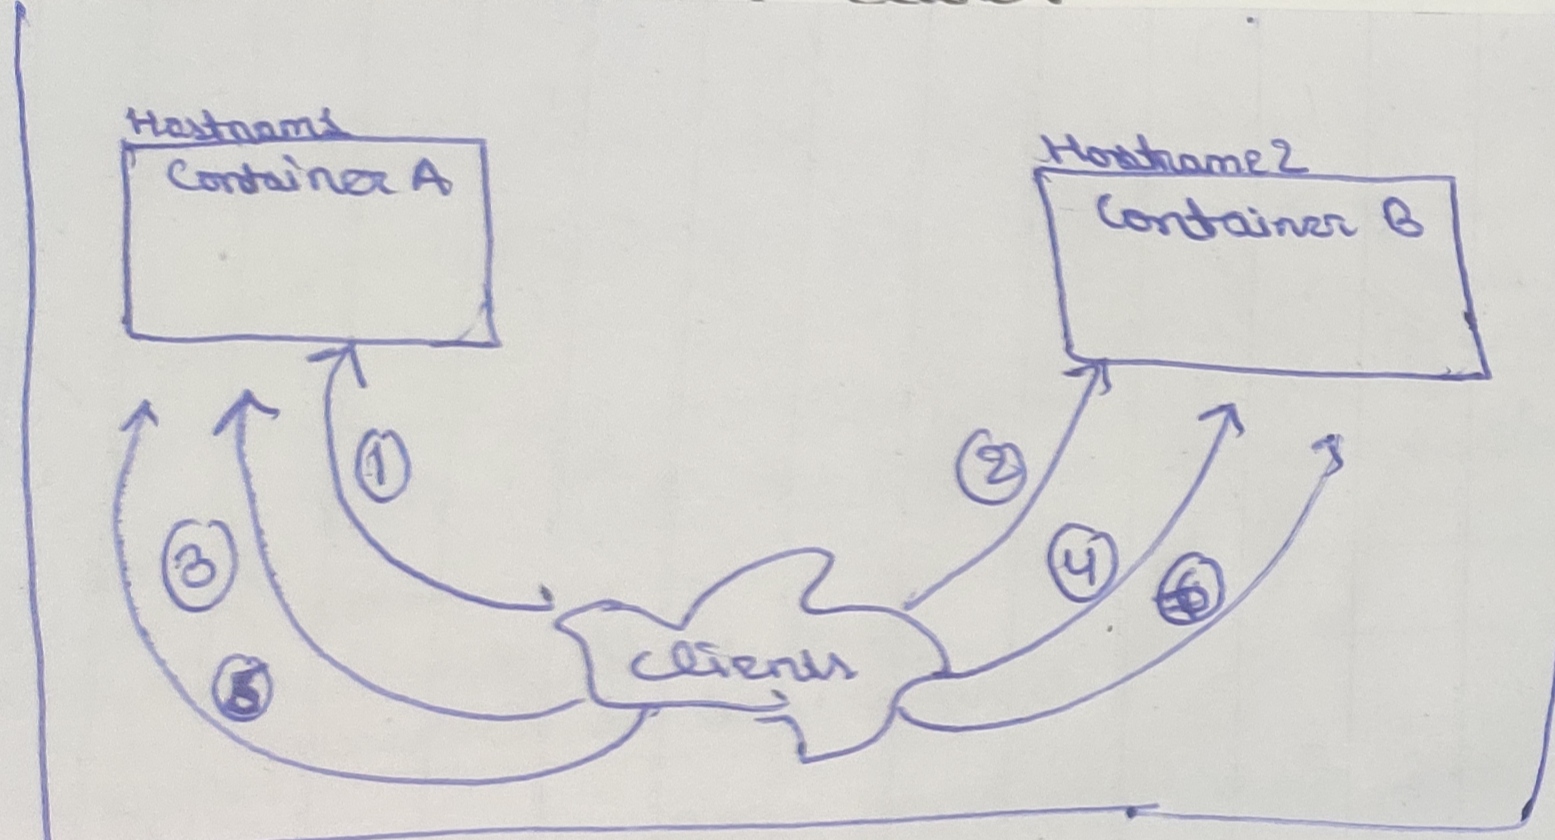 Hostname1
Container A
Hostname2
Container B
1
2
3
4
5
6
Clients